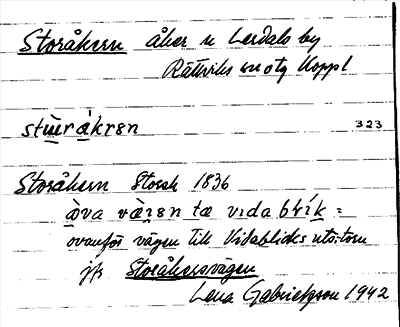 Storåkern åker n Lerdals by
Rättviks sn o tg Koppl
stùrákrən 323
Storåkern Storsk 1836
ɑ̀va vä̀ɪən tœ vɪdabk̀rík =
ovanför vägen till Vidablicks utstorn
jfr Storåkersvägen
Lena Gabrielsson 1942